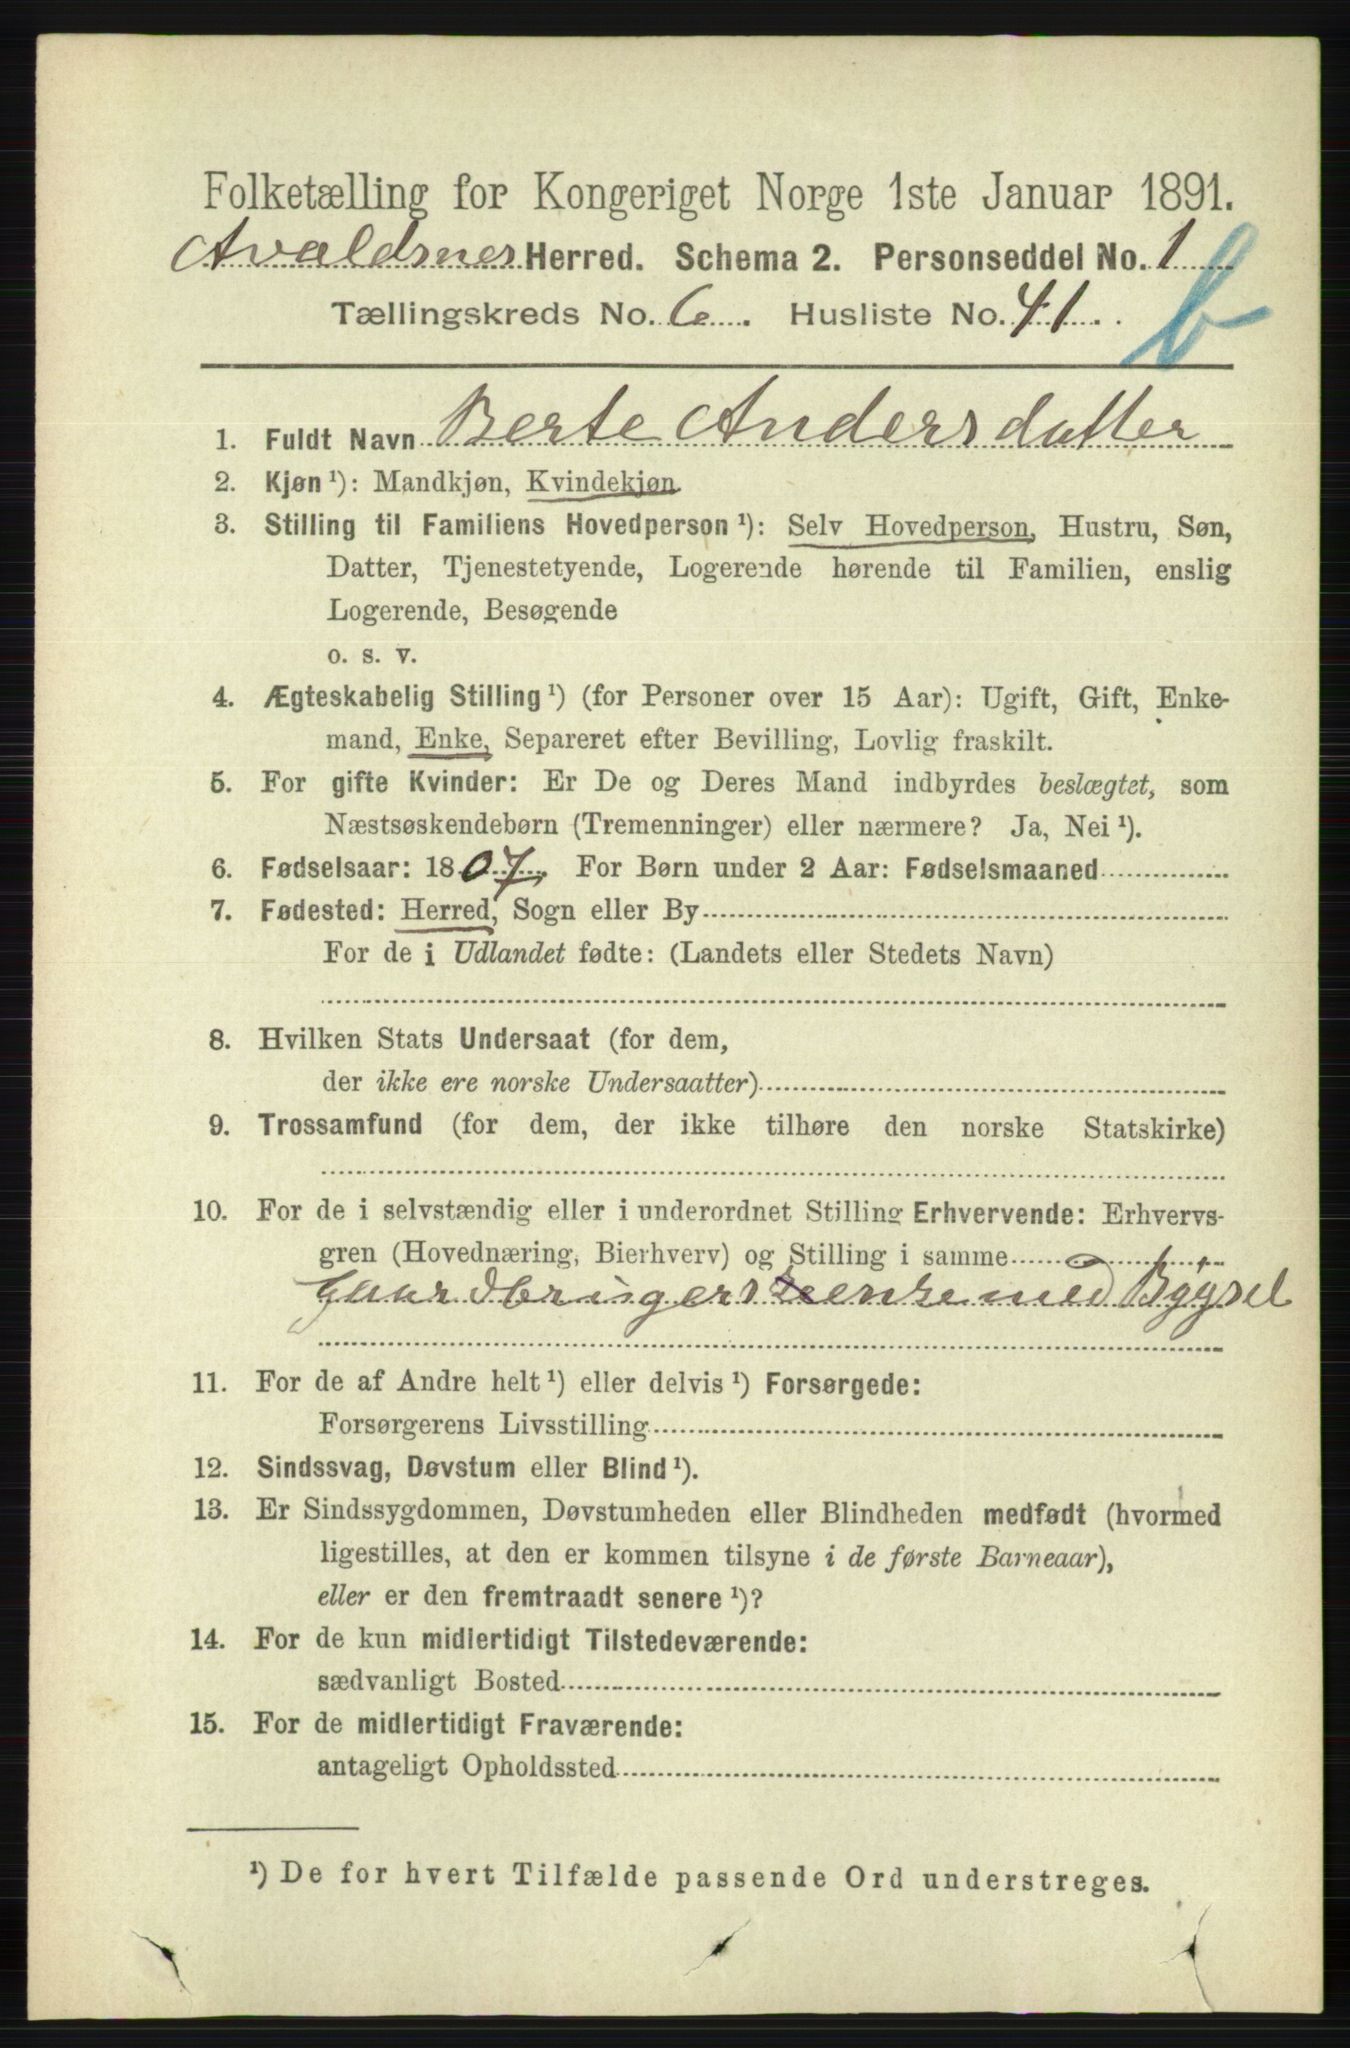 Folketælling for Kongeriget Norge 1ste Januar 1891.
Avaldsnes Herred. Schema 2. Personseddel No. 1
Tællingskreds No. 6. Husliste No. 41. b
1. Fuldt Navn Berte Andersdatter
2. Kjøn ¹): Mandkjøn, Kvindekjøn
3. Stilling til Familiens Hovedperson ¹): Selv Hovedperson, Hustru, Søn,
Datter, Tjenestetyende, Logerende hørende til Familien, enslig
Logerende, Besøgende
o. s. v.
4. Ægteskabelig Stilling ¹) (for Personer over 15 Aar): Ugift, Gift, Enke-
mand, Enke, Separeret efter Bevilling, Lovlig fraskilt.
5. For gifte Kvinder: Er De og Deres Mand indbyrdes beslægtet, som
Næstsøskendebørn (Tremenninger) eller nærmere? Ja, Nei ¹).
6. Fødselsaar: 1807. For Børn under 2 Aar: Fødselsmaaned
7. Fødested: Herred, Sogn eller By
For de i Udlandet fødte: (Landets eller Stedets Navn)
8. Hvilken Stats Undersaat (for dem,
der ikke ere norske Undersaatter)
9. Trossamfund (for dem, der ikke tilhøre den norske Statskirke)
10. For de i selvstændig eller i underordnet Stilling Erhvervende: Erhvervs-
gren (Hovednæring, Bierhverv) og Stilling i samme
Gaardbrugers enke med Bygsel
11. For de af Andre helt ¹) eller delvis ¹) Forsørgede:
Forsørgerens Livsstilling
12. Sindssvag, Døvstum eller Blind ¹).
13. Er Sindssygdommen, Døvstumheden eller Blindheden medfødt (hvormed
ligestilles, at den er kommen tilsyne i de første Barneaar),
eller er den fremtraadt senere ¹)?
14. For de kun midlertidigt Tilstedeværende:
sædvanligt Bosted
15. For de midlertidigt Fraværende:
antageligt Opholdssted
¹) De for hvert Tilfælde passende Ord understreges.